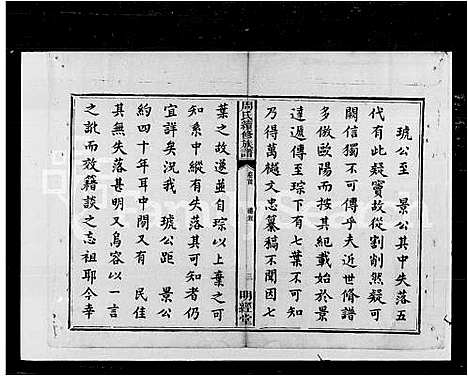 琥公至 景公其中失落五
代有此疑竇故從割削然疑可
闕信獨不可傳乎夫近世脩譜
多倣歐陽而按其紀載始於景
達遞傳至琮下有七葉不可知
乃得萬樾文忠纂稿不聞因七
周氏續修族譜
卷首
三
明經堂
葉之故遂並自琮以上棄之可
知系中縱有失落其可知者仍
宜詳矣况我 琥公距 景公
約四十年耳中間又有 民佳
其無失落甚明又烏容以一言
之訛而效籍談之忘祖耶今幸